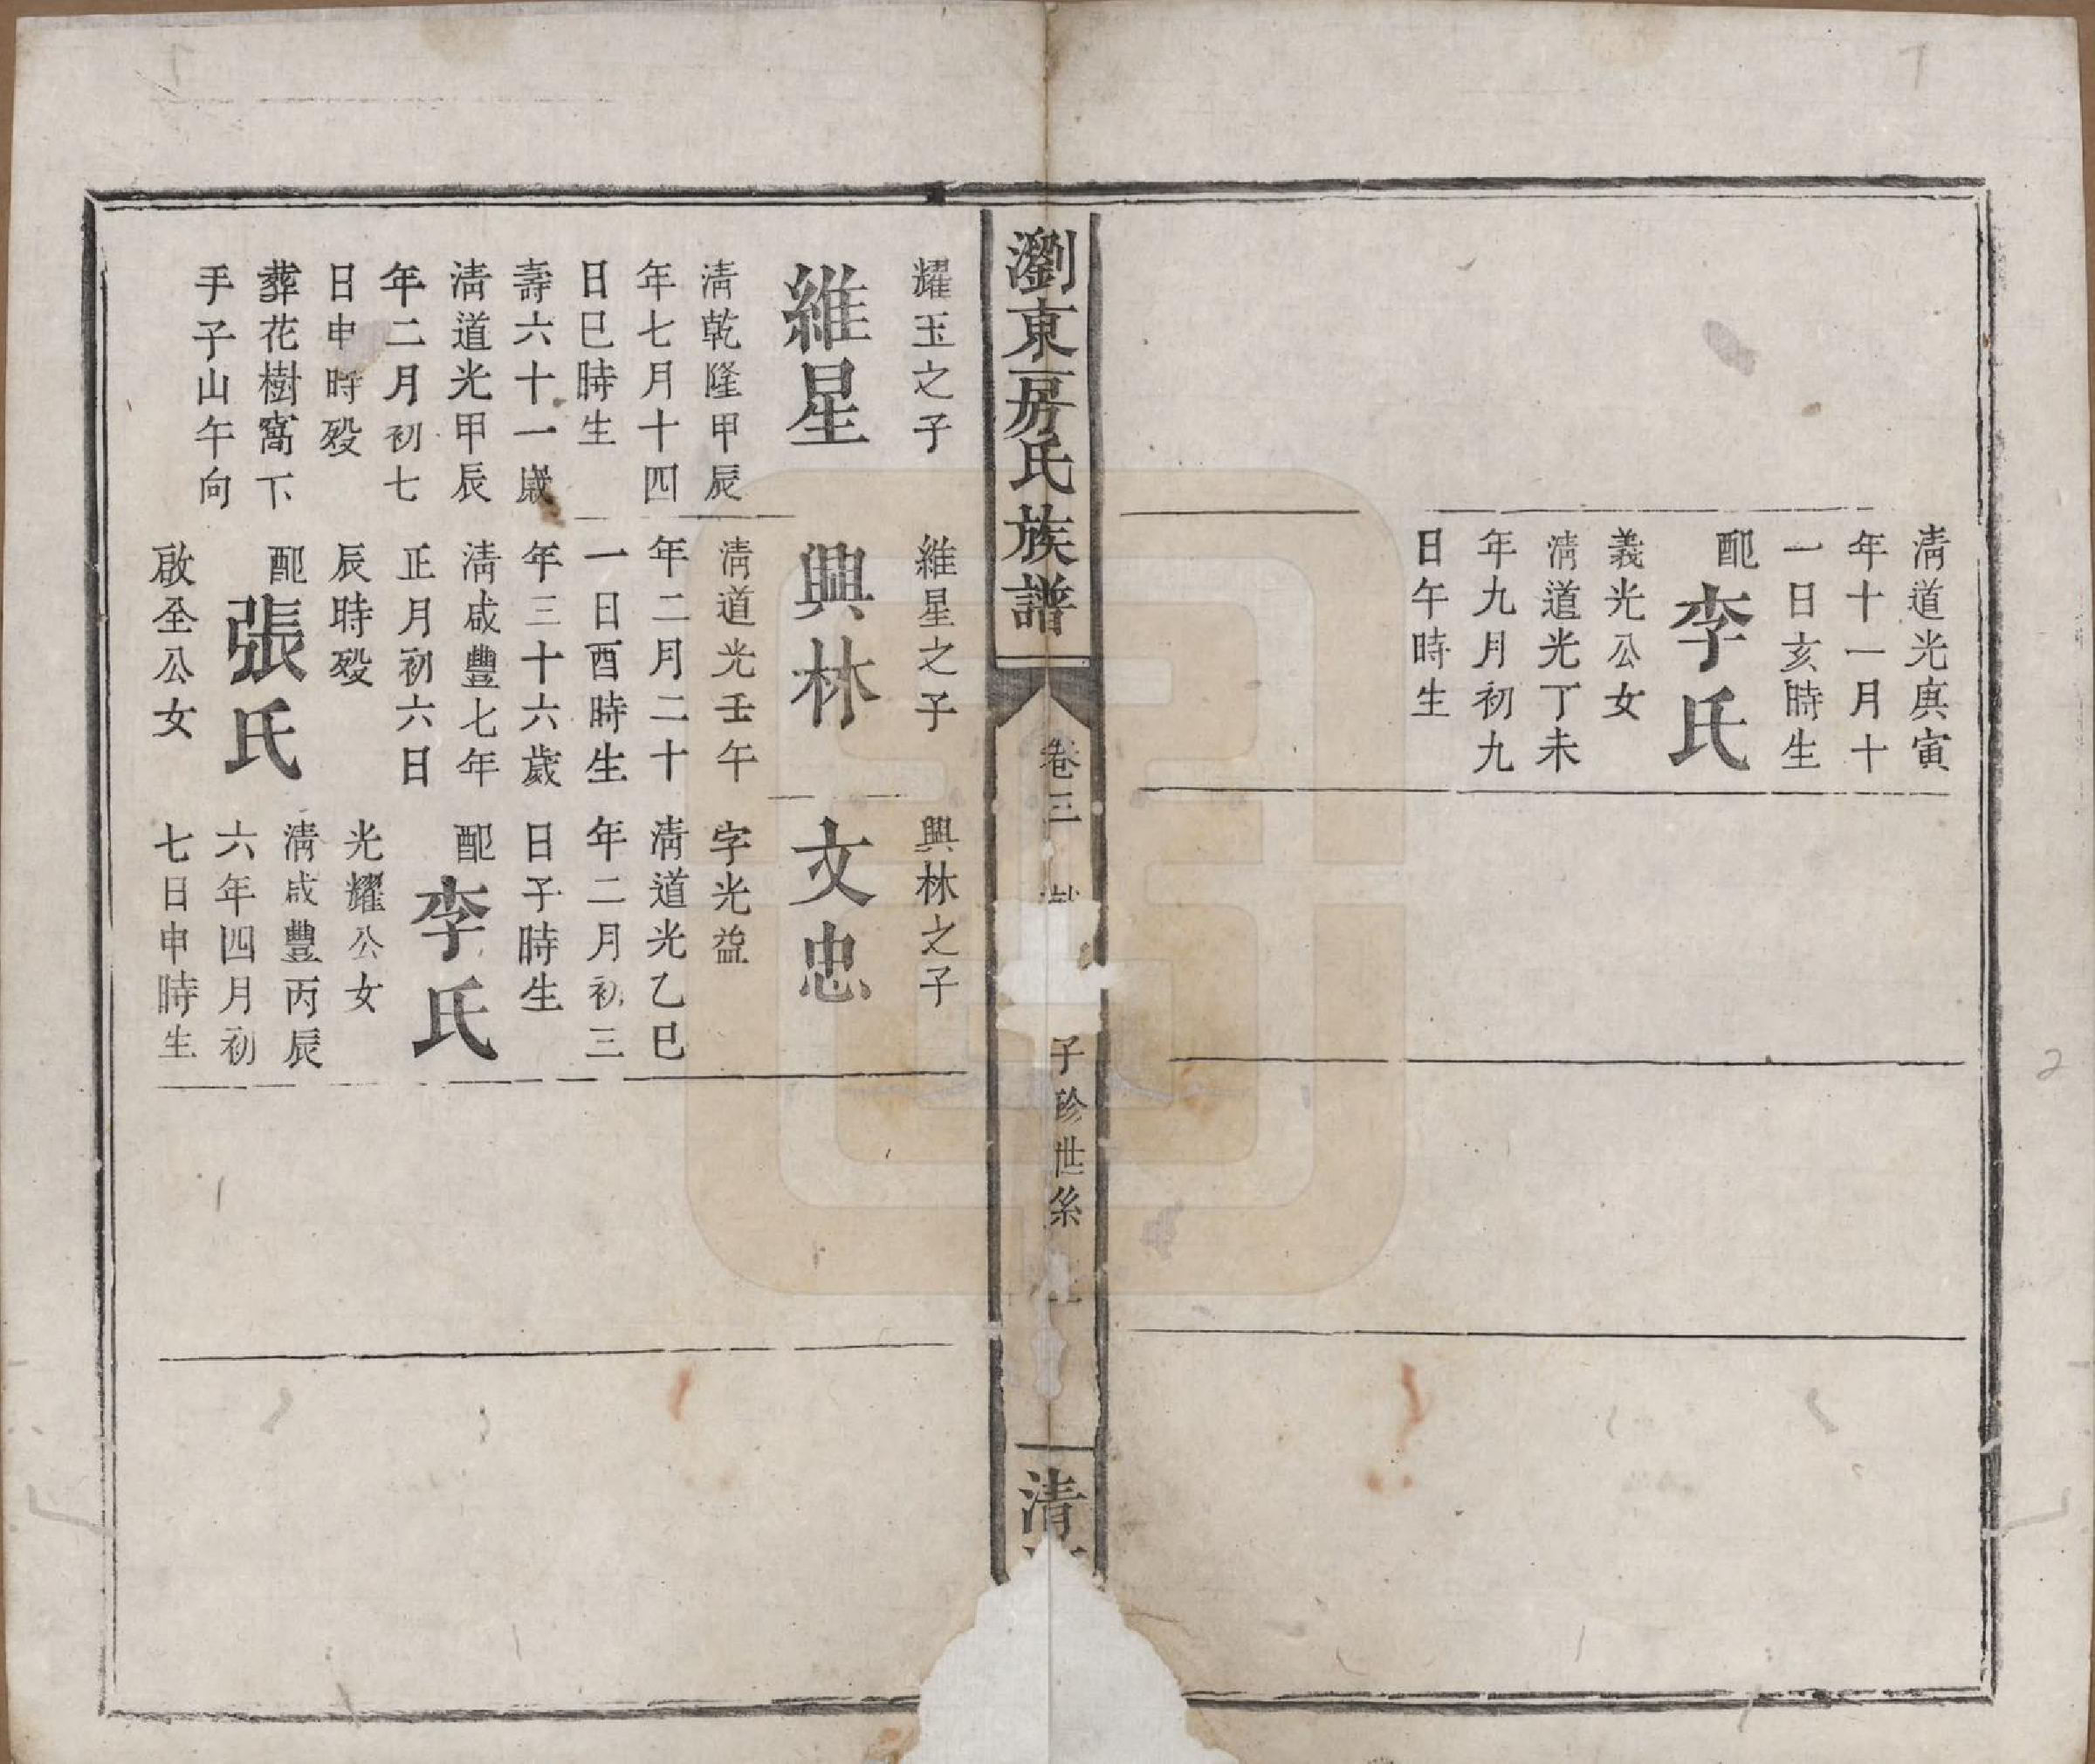 清道光庚寅
年十一月十
一日亥時生
配李氏
義光公女
清道光丁未
年九月初九
日午時生
瀏東房氏族譜
卷三
子珍世系
清
耀玉之子
維星
清乾隆甲辰
年七月十四
日巳時生
壽六十一歲
清道光甲辰
年二月初七
日申時歿
葬花樹窩下
手子山午向
維星之子
興林
清道光壬午
年二月二十
一日酉時生
年三十六歲
清咸豐七年
正月初六日
辰時歿
配張氏
啟全公女
興林之子
文忠
字光益
清道光乙巳
年二月初三
日子時生
配李氏
光耀公女
清咸豐丙辰
六年四月初
七日申時生